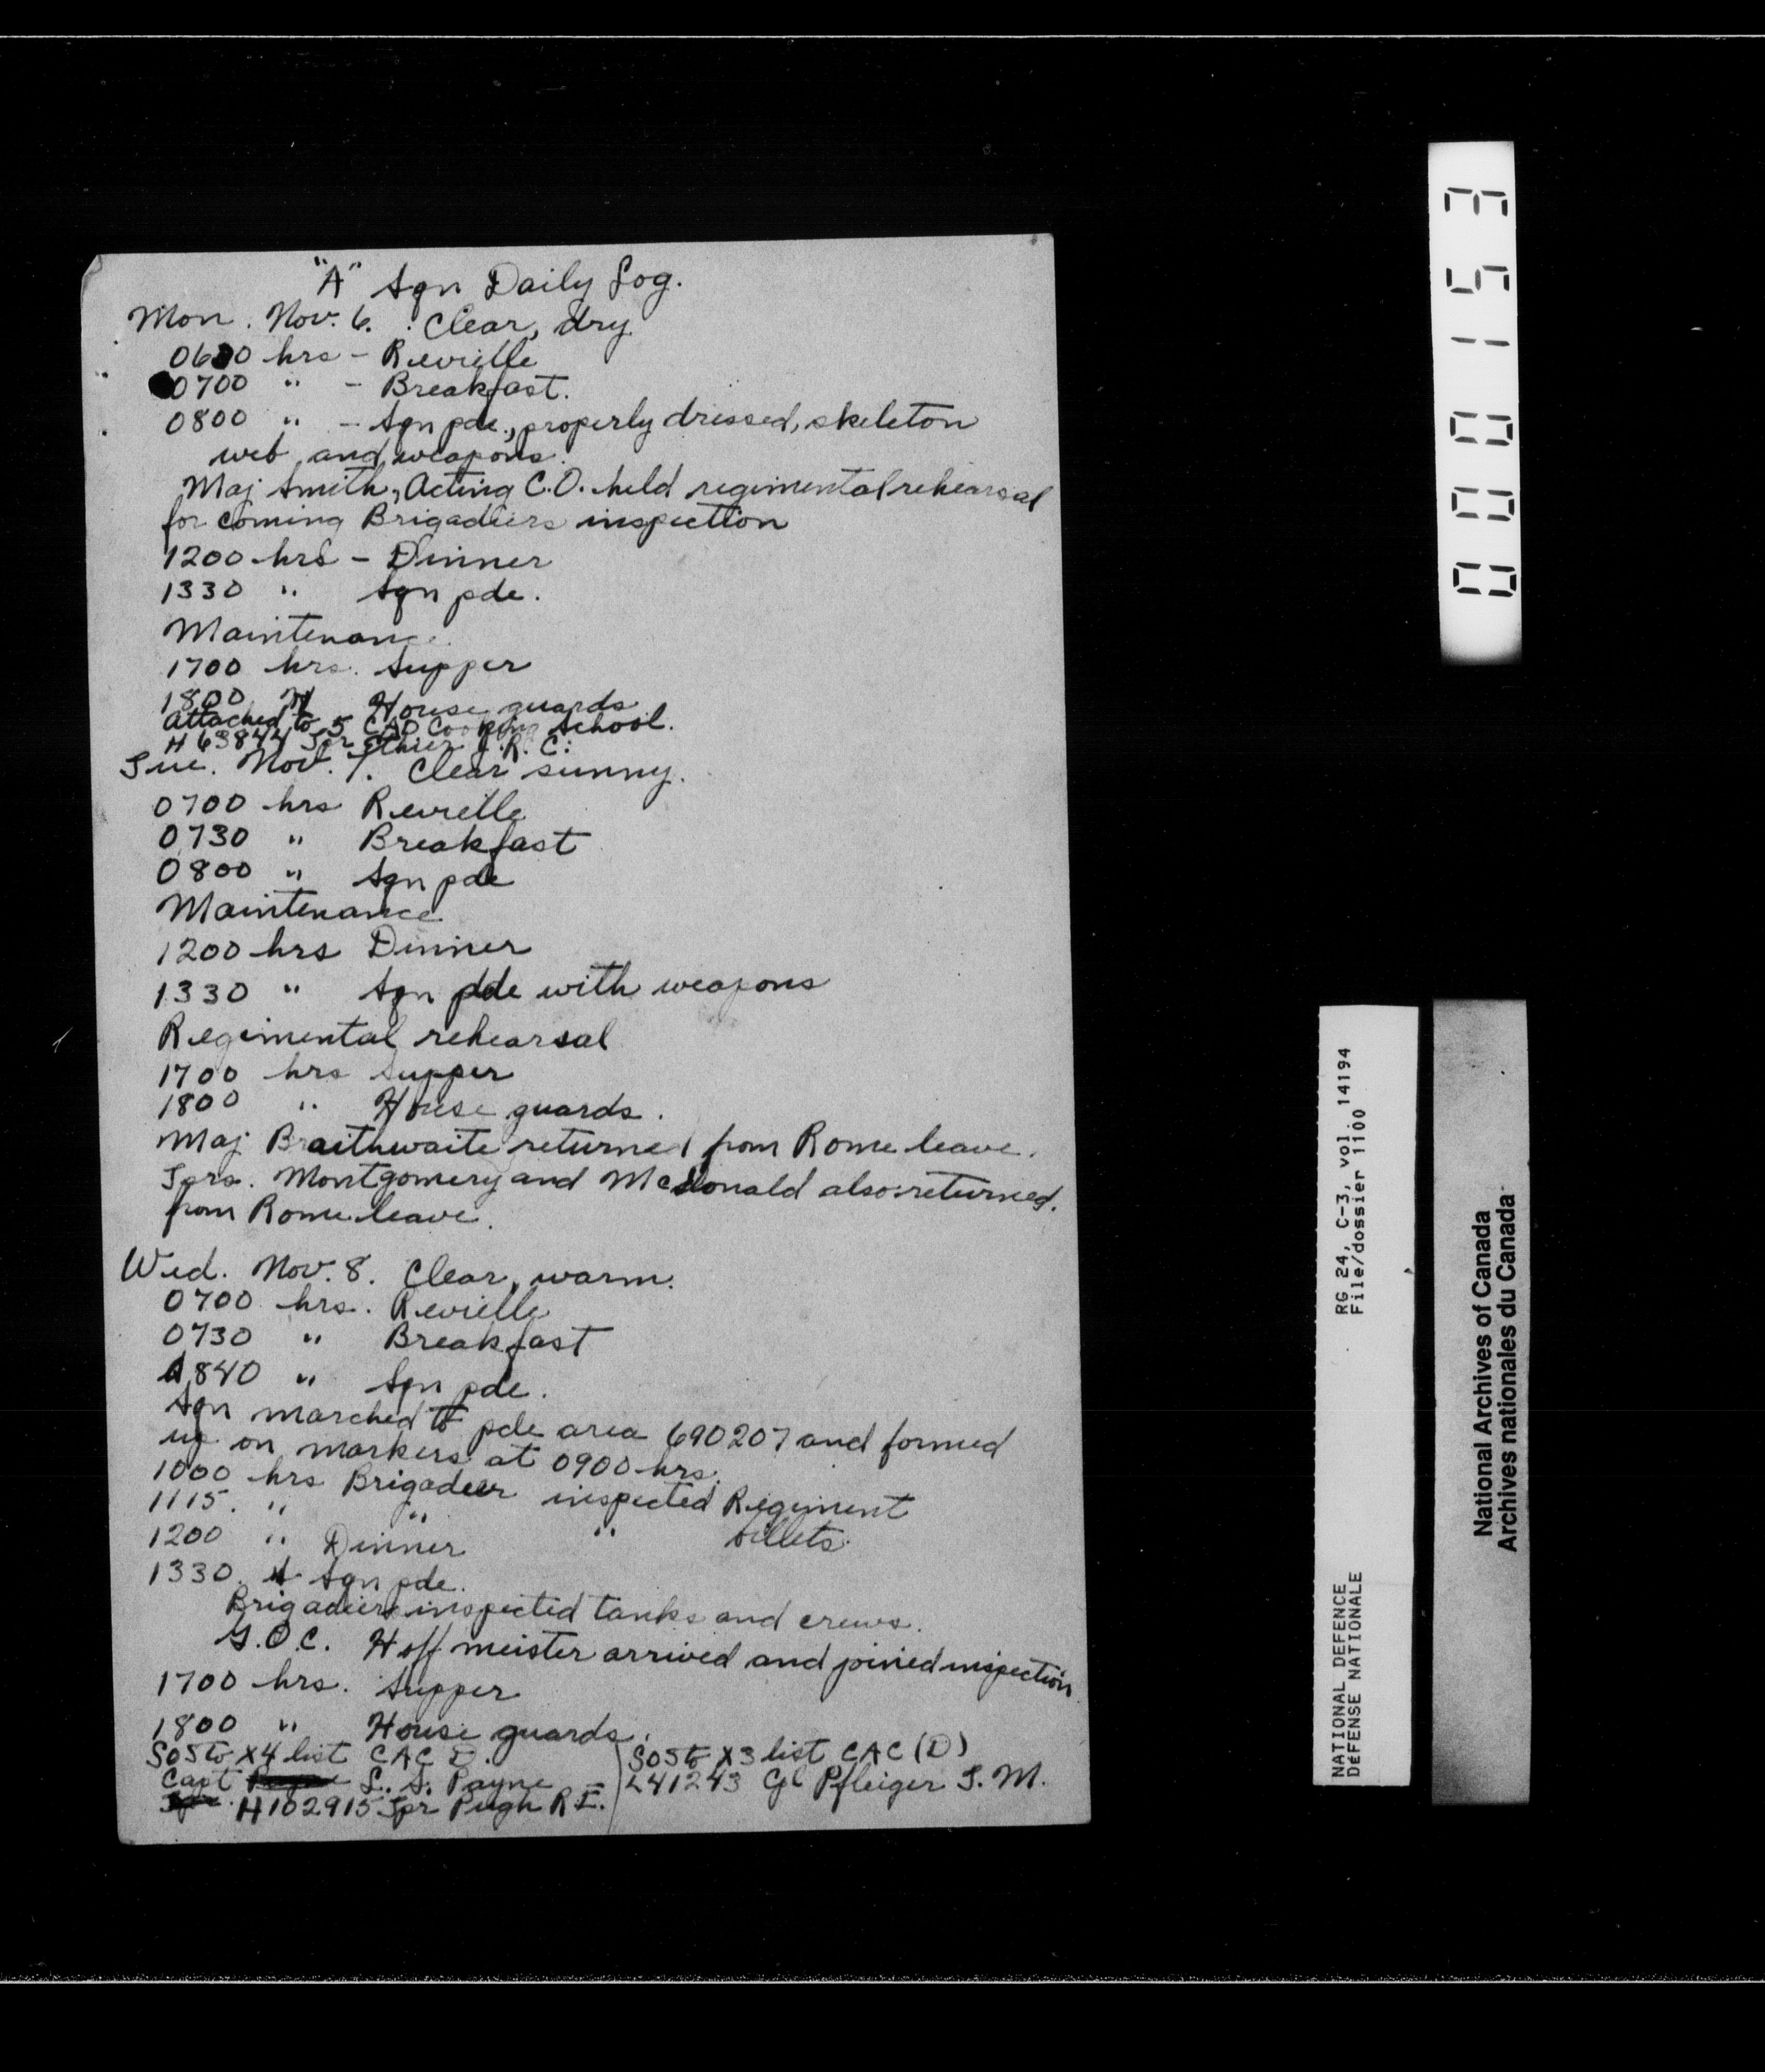 "A" Sqn Daily Log.
Mon. Nov. 6. Clear, dry.
0600 hrs - Revielle
0700 " - Breakfast.
0800 " - Sqn pde., properly dressed, skeleton
web, and weapons.
Maj Smith, Acting C.O. held regimental rehearsal
for coming Brigadiers inspection
1200 hrs - Dinner
1330 " Sqn pde.
Maintenance.
1700 hrs. Supper
1800 " House guards
Attached to 5 CAD Cooking School.
H 63844 Tpr J.R.C.
Tue. Nov. 7. Clear sunny.
0700 hrs Revielle
0730 " Breakfast
0800 " Sqn pde
Maintenance
1200 hrs Dinner
1330 " Sqn pde with weapons
Regimental rehearsal
1700 hrs Supper
1800 " House guards.
Maj Braithwaite returned from Rome leave.
Tprs. Montgomery and McDonald also returned.
from Rome leave.
Wed. Nov. 8. Clear, warm.
0700 hrs. Revielle
0730 " Breakfast
0840 " Sqn pde.
Sqn marched to pde area 690207 and formed
up on markers at 0900 hrs.
1000 hrs Brigadier inspected Regiment
1115 " " " billets.
1200 " Dinner
1330 " Sqn pde.
Brigadier inspected tanks and crews.
G.O.C. Hoffmeister arrived and joined inspection
1700 hrs. Supper
1800 " House guards.
SOS to X4 list CAC D.
Capt L. S. Payne
H102915 Tpr Pugh R.E.
SOS to X3 list CAC (D)
L41243 Cpl Pfleiger S. M.
000153
RG 24, C-3, vol. 14194
File/dossier 1100
NATIONAL DEFENCE
DéFENSE NATIONALE
National Archives of Canada
Archives nationales du Canada